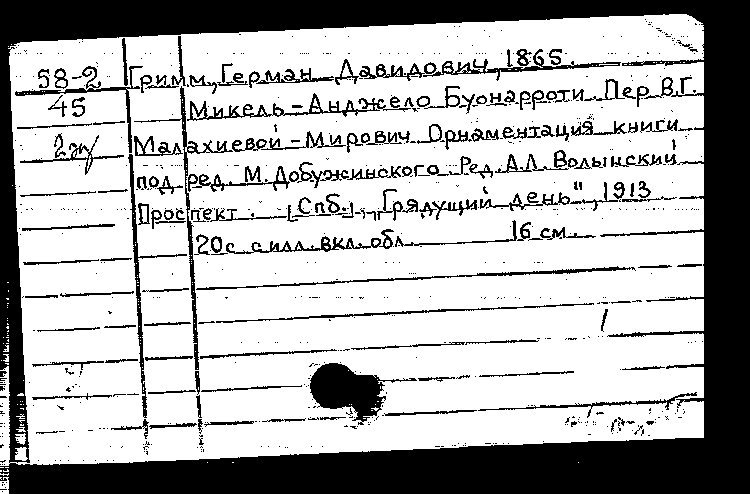 58-2 Гримм, Герман Давидович, 1865.
45 Микель-Анджело Буонарроти. Пер В.Г.
2 эу Малахиевой-Мирович Орнаментация книги
под ред. М. Добужинского. Ред. А.Л. Волынский
Проспект. [Спб.], "Грядущий день", 1913
20с с илл. вкл. обл. 16 см.